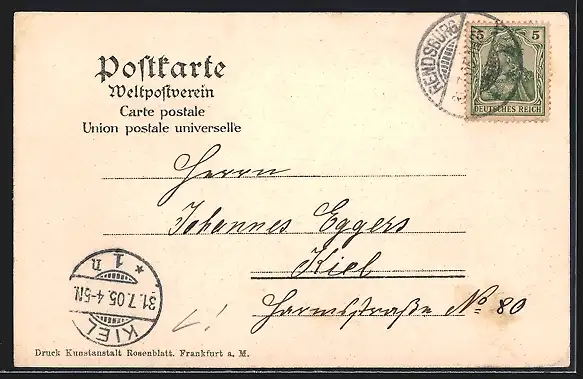 RENDSBURG
5 5
DEUTSCHES REICH
Postkarte
Weltpostverein
Carte postale
Union postale universelle
Herrn
Johannes Eggers
Kiel
Harmsstraße No 80
KIEL
31.7.05.4-5N.
* 1 n
Druck Kunstanstalt Rosenblatt, Frankfurt a. M.